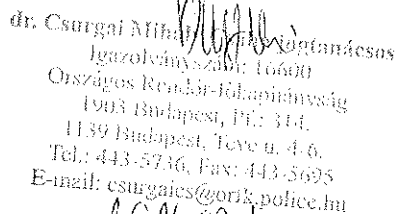 dr. Csurgai Mihály jogtanácsos
Igazolványszám: 16600
Országos Rendőr-főkapitányság
1903 Budapest, Pf.: 314.
1139 Budapest, Teve u. 4-6.
Tel.: 443-5736, Fax: 443-5695
E-mail: csurgaics@orfk.police.hu